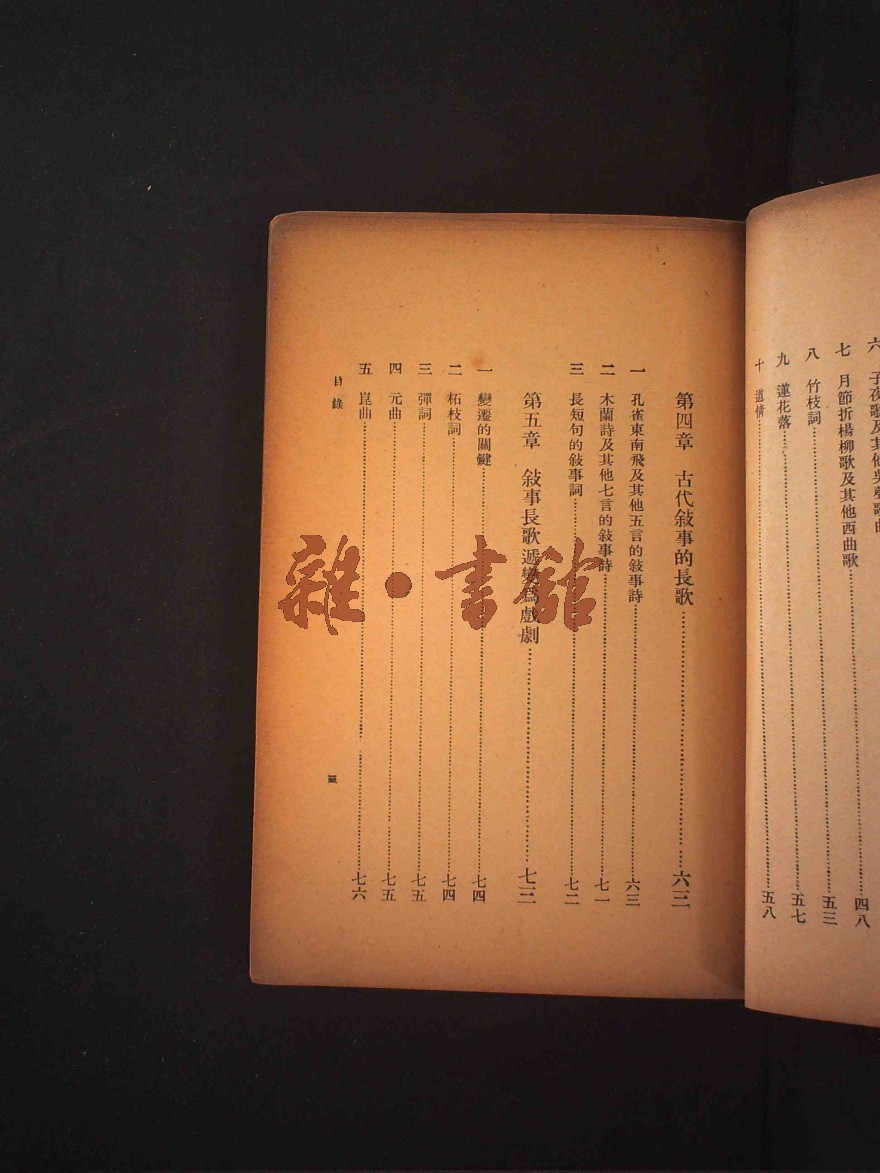 子夜歌及其他吳聲歌曲
七 月節折楊柳歌及其他西曲歌……四八
八 竹枝詞……五三
九 蓮花落……五七
十 道情……五八
第四章 古代敍事的長歌……六三
一 孔雀東南飛及其他五言的敍事詩……六三
二 木蘭詩及其他七言的敍事詩……七一
三 長短句的敍事詞……七二
第五章 敍事長歌遞變爲戲劇……七三
一 變遷的關鍵……七四
二 柘枝詞……七四
三 彈詞……七五
四 元曲……七五
五 崑曲……七六
目錄
三
雜·書館